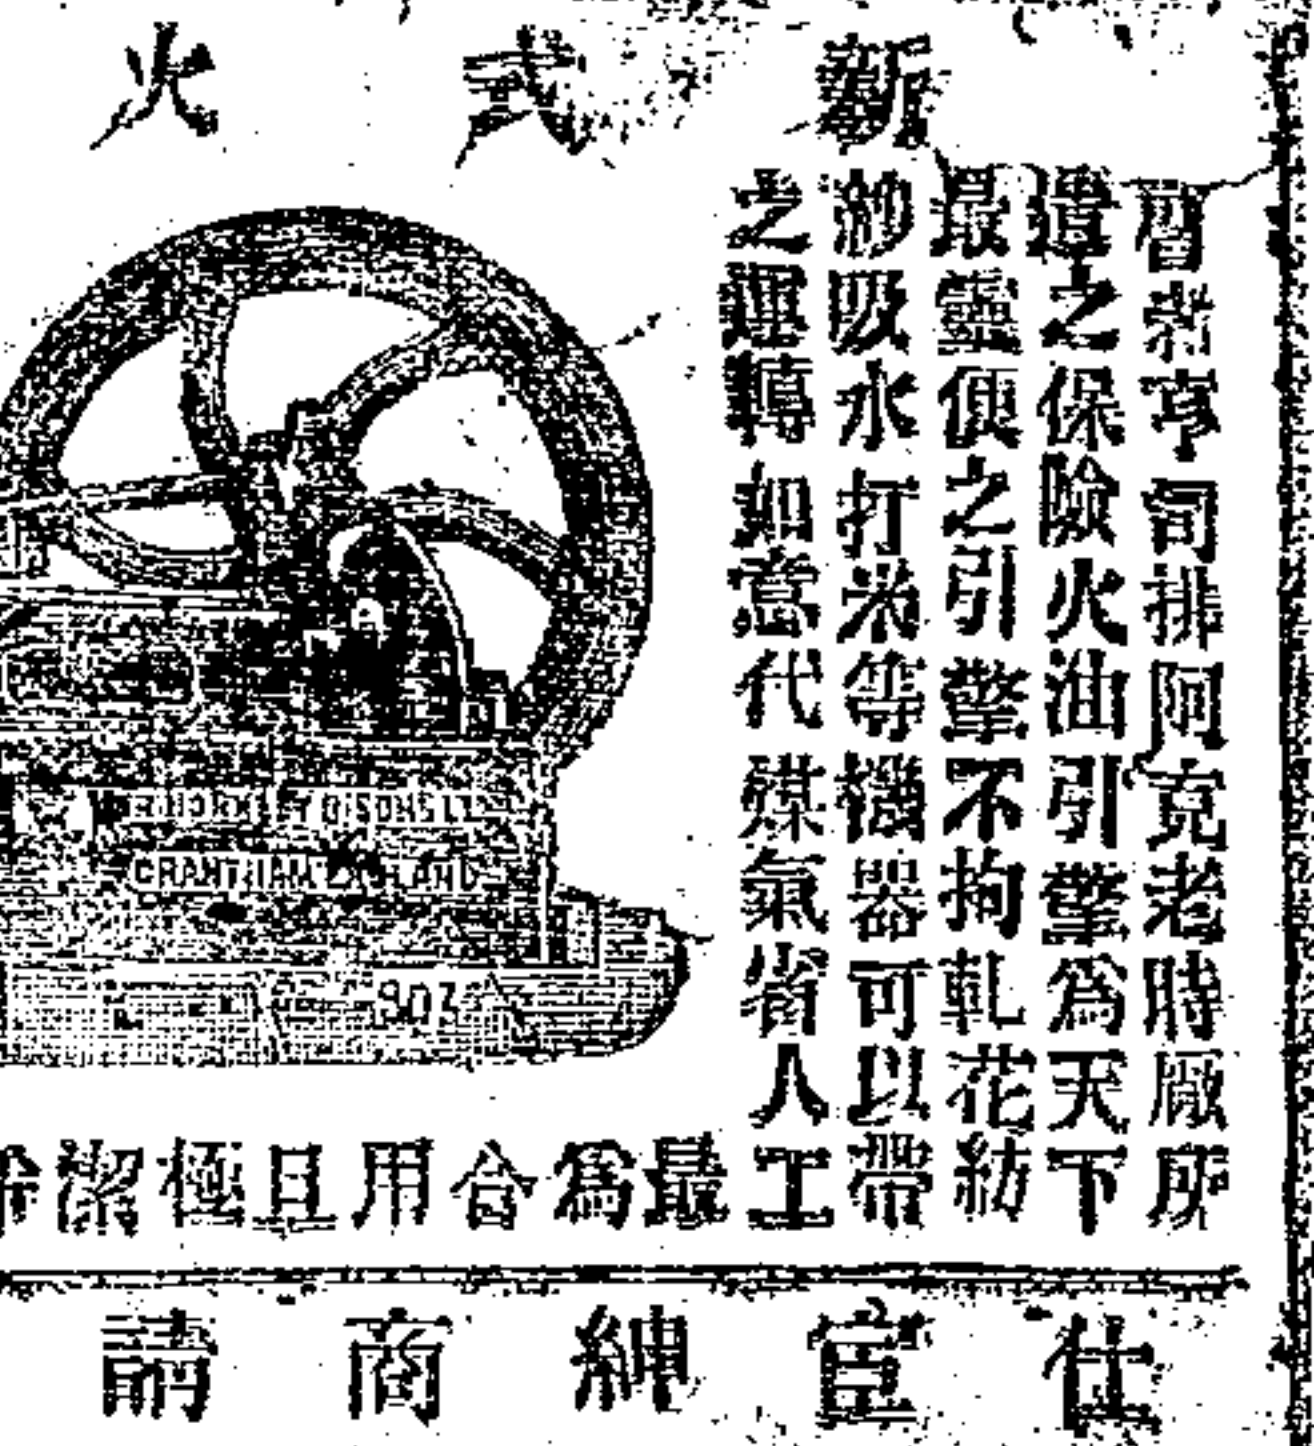 新式火
老亨司排阿克老時廠所
遺之保險火油引擎為天下
最靈便之引擎不拘軋花紡
紗吸水打米等機器可以帶
之運轉如意代煤氣省人工
最為合用且極潔
GRANTHAM ENGLAND
仕宦紳商請